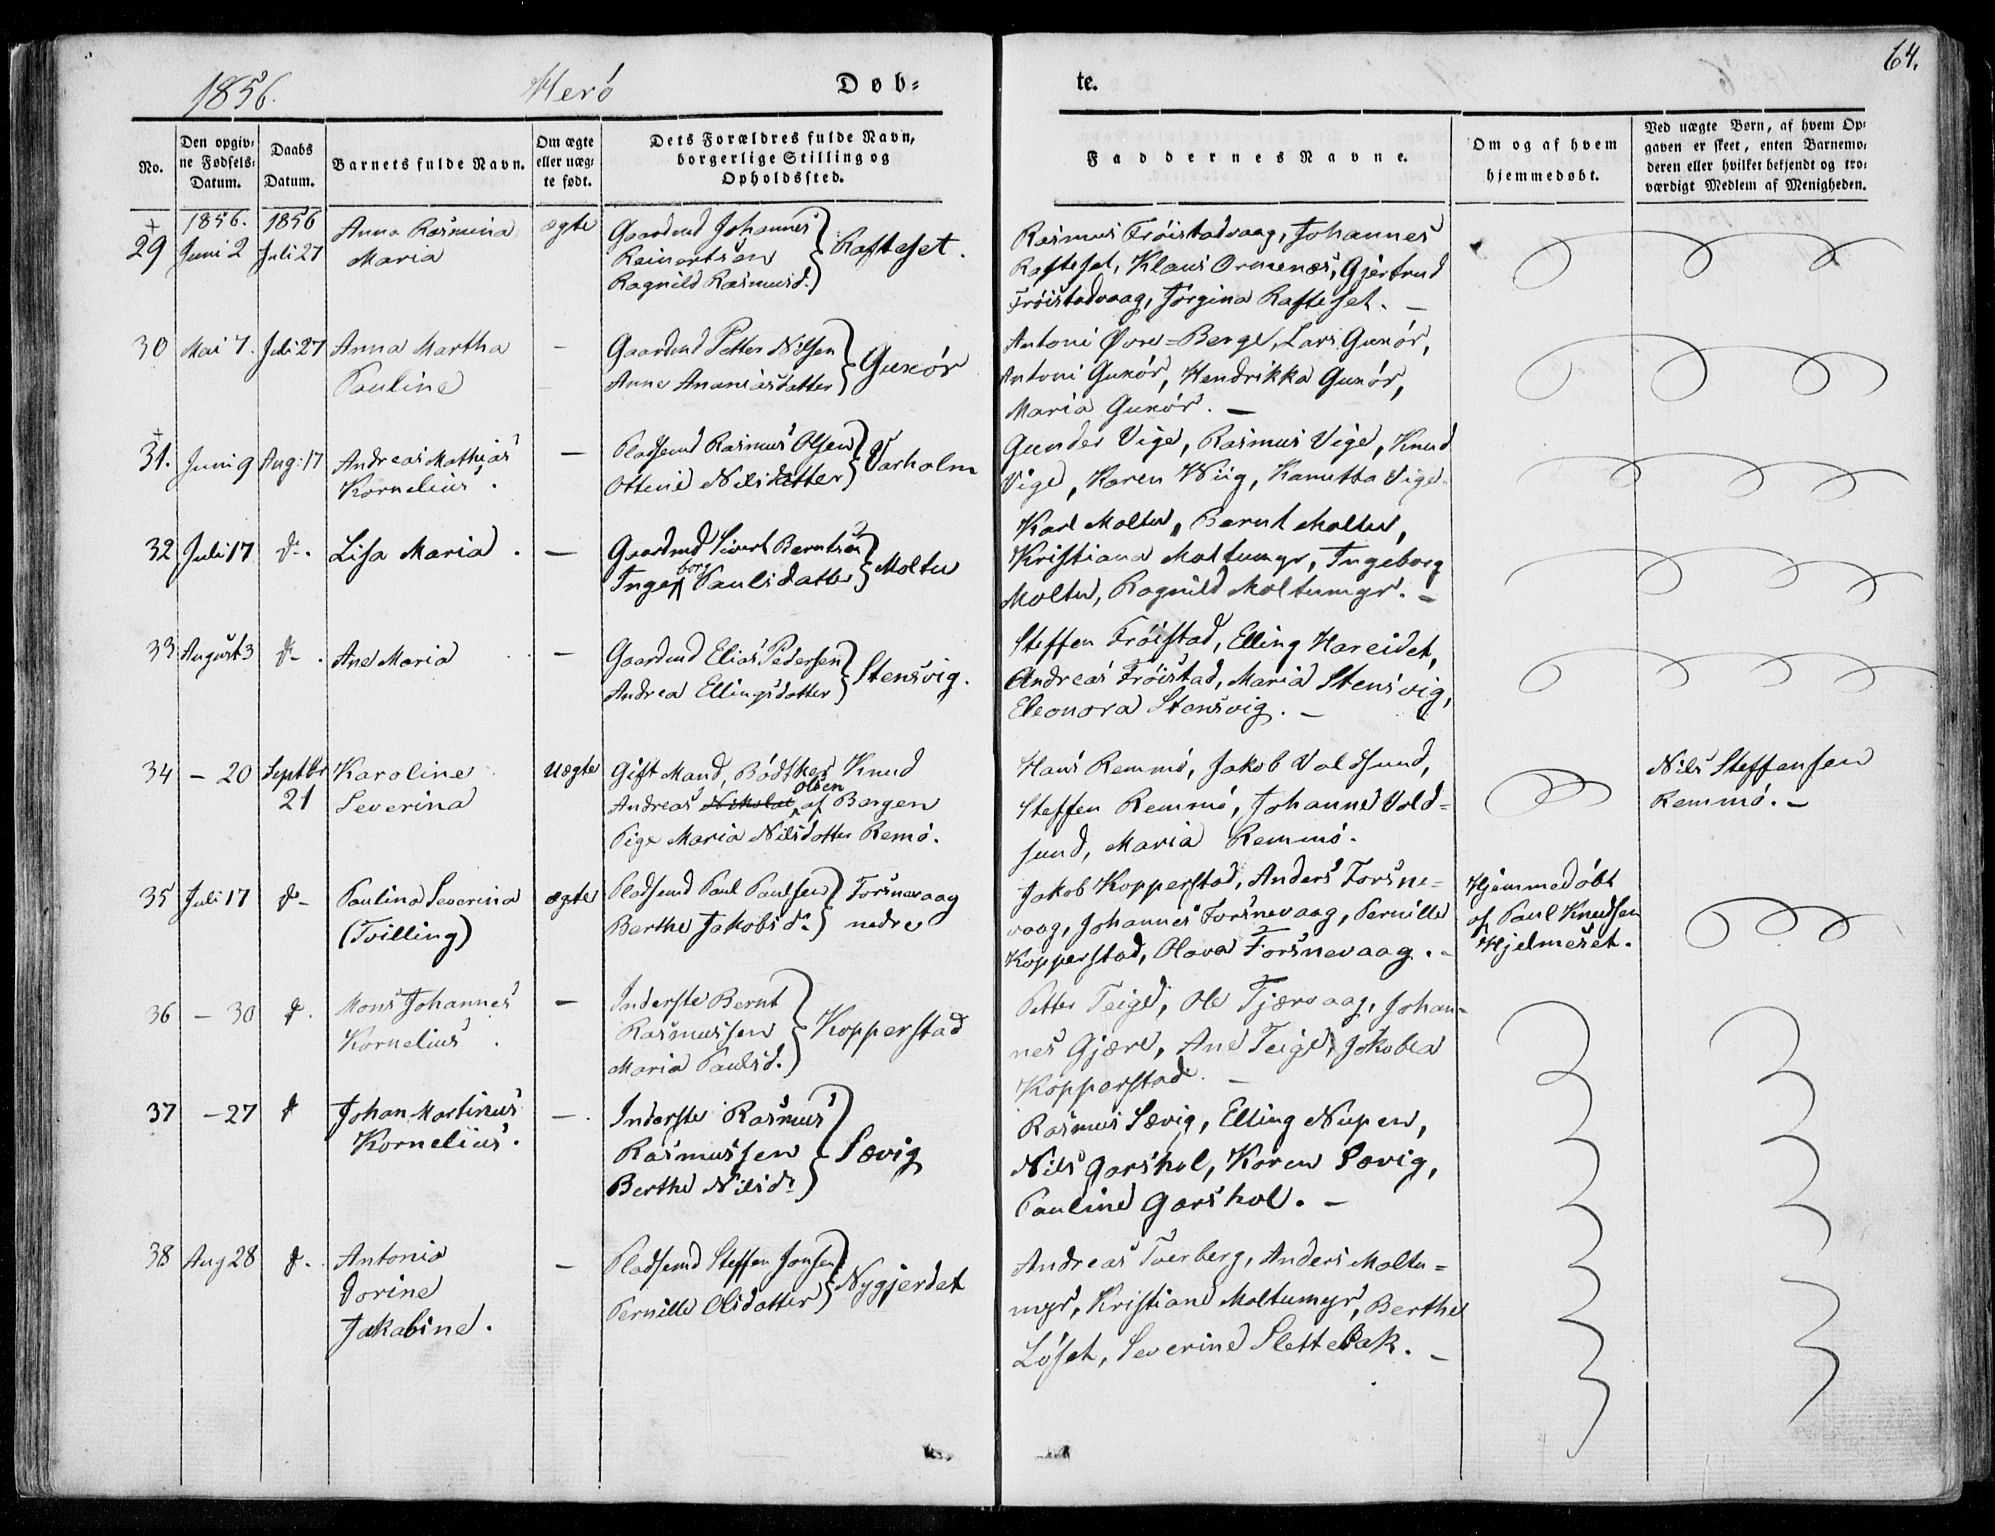 64.
1856.
Herö
Døb=
te.
No.
Den opgiv=
ne Fødsels=
Datum.
Daabs
Datum.
Barnets fulde Navn.
Om ægte
eller uæg=
te født.
Dets Forældres fulde Navn,
borgerlige Stilling og
Opholdssted.
Faddernes Navne.
Om og af hvem
hjemmedøbt.
Ved uægte Børn, af hvem Op=
gaven er skeet, enten Barnemo=
deren eller hvilket bekjendt og tro=
værdigt Medlem af Menigheden.
1856. 1856
29 Juni 2 Juli 27 Anna Rasmina Maria ægte
Gaardmd Johannes
Reinertsen
Ragnild Rasmusd.
Rafteset.
Rasmus Fröistadvaag, Johannes
Rafteset, Klaus Ormenæs, Gjertrud
Fröistadvaag, Jörgina Rafteset. —
30 Mai 7. Juli 27 Anna Martha Pauline —
Gaardmd Petter Nilsen
Anne Ananiasdatter
Guxör
Antoni Øvre=Berge, Lars Guxör,
Antoni Guxör, Hendrikka Guxör,
Maria Guxör. —
31. Juni 9 Aug: 17 Andreas Mathias Kornelius. —
Pladsemd Rasmus Olsen
Ottine Nilsdatter
Varholm
Gunder Vige, Rasmus Vige, Knud
Vige, Karen Wiig, Kanutta Vige.
32 Juli 17 do. Lisa Maria. —
Gaardmd Sivert Berntsen
Ingeborg Paulsdatter
Moltu
Karl Moltu, Bernt Moltu,
Kristiana Moltumyr, Ingeborg
Moltu, Ragnild Moltumyr. —
33 August 3 do. Ane Maria —
Gaardmd Elias Pedersen
Andrea Ellingsdatter
Stensvig.
Steffen Fröistad, Elling Hareidet,
Andreas Fröistad, Maria Stensvig,
Eleonora Stensvig. —
34 — 20 Septbr 21 Karoline Severina uægte
Gift Mand, Bödtker Knud
Andreas Nikolai Olsen af Bergen
Pige Maria Nilsdatter Remö.
Hans Remmö, Jakob Voldsund,
Steffen Remmö, Johanne Vold=
sund, Maria Remmö.
Nils Steffensen
Remmö. —
35 Juli 17 do Paulina Severina (Tvilling) ægte
Pladsemd Paul Paulsen
Berthe Jakobsdr.
Torsnevaag
nedre
Jakob Kopperstad, Anders Torsne=
vaag, Johannes Torsnevaag, Pernille
Kopperstad, Olava Torsnevaag. —
Hjemmedöbt
af Paul Knudsen
Hjelmeset.
36 — 30 do. Mons Johannes Kornelius. —
Inderste Bernt
Rasmussen
Maria Paulsd.
Kopperstad
Petter Teige, Ole Tjærvaag, Johan=
nes Gjære, Ane Teige, Jakobea
Kopperstad. —
37 — 27 do Johan Martinus Kornelius. —
Inderste Rasmus
Rasmussen
Berthe Nilsdr
Sævig
Rasmus Sævig, Elling Nupen,
Nils Garshol, Karen Sævig,
Pauline Garshol. —
38 Aug 28 do. Antonia Dorine Jakabine. —
Pladsemd Steffen Jonsen
Pernille Olsdatter
Nygjerdet
Andreas Tverberg, Anders Moltu=
myr, Kristiane Moltumyr, Berthe
Löset, Severine Slettebak. —